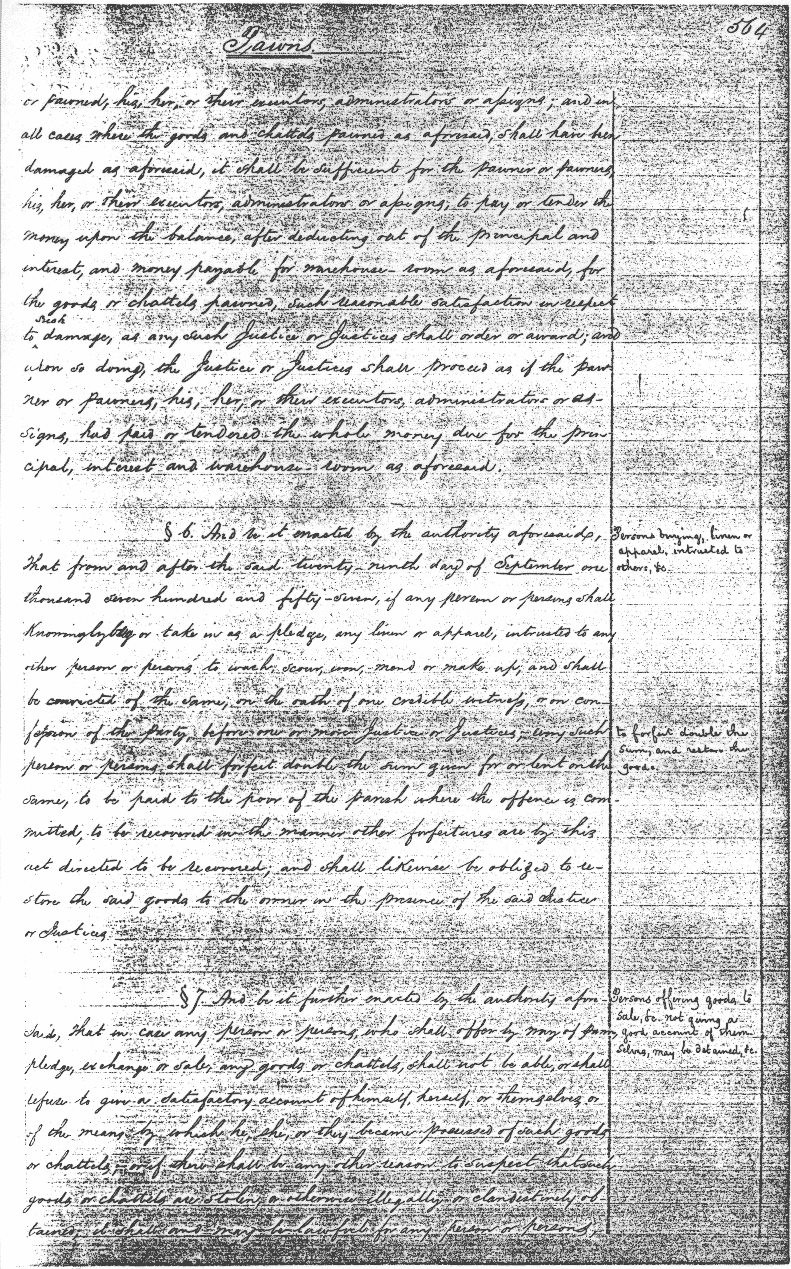 564
Pawns.
or pawned, his, her, or their executors, administrators or assigns; and in
all cases where the goods and chattels pawned as aforesaid, shall have been
damaged as aforesaid, it shall be sufficient for the pawner or pawners,
his, her, or their executors, administrators or assigns, to pay or tender the
money upon the balance, after deducting out of the principal and
interest, and money payable for warehouse-room as aforesaid, for
the goods or chattels pawned, such reasonable satisfaction in respect
to such damage, as any such Justice or Justices shall order or award; and
upon so doing, the Justice or Justices shall proceed as if the paw-
ner or pawners, his, her, or their executors, administrators or as-
signs, had paid or tendered the whole money due for the prin-
cipal, interest and warehouse-room as aforesaid.
§ 6. And be it enacted by the authority aforesaid,
That from and after the said twenty-ninth day of September one
thousand seven hundred and fifty-seven, if any person or persons shall
knowingly buy or take in as a pledge, any linen or apparel, intrusted to any
other person or persons to wash, scour, iron, mend or make up, and shall
be convicted of the same, on the oath of one credible witness, or on con-
fession of the party, before one or more Justice or Justices, any such
person or persons shall forfeit double the sum given for or lent on the
same, to be paid to the poor of the parish where the offence is com-
mitted, to be recovered in the manner other forfeitures are by this
act directed to be recovered; and shall likewise be obliged to re-
store the said goods to the owner in the presence of the said Justice
or Justices
Persons buying, linen or
apparel, intrusted to
others, &c.
to forfeit double the
sum, and restore the
goods.
§ 7. And be it further enacted by the authority afore-
said, that in case any person or persons, who shall offer by way of pawn,
pledge, exchange, or sale, any goods or chattels, shall not be able, or shall
refuse to give a satisfactory account of himself, herself, or themselves, or
of the means by which he, she, or they became possessed of such goods
or chattels, or if there shall be any other reason to suspect that such
goods or chattels are stolen, or otherwise illegally or clandestinely ob-
tained, it shall and may be lawful for any person or persons,
Persons offering goods to
sale, &c. not giving a
good account of them
selves, may be detained, &c.